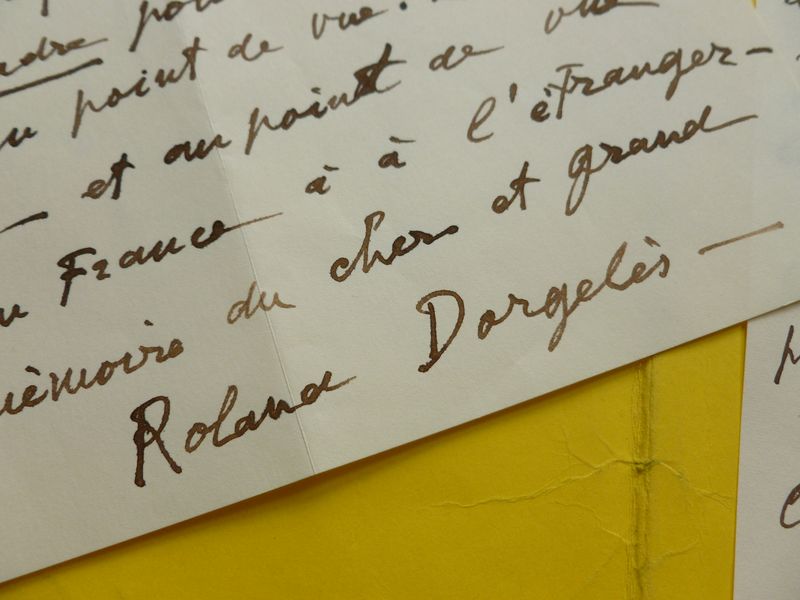 point de vue.
et au point de vue
France à à l'étranger -
mémoire du cher et grand
Roland Dorgelès —